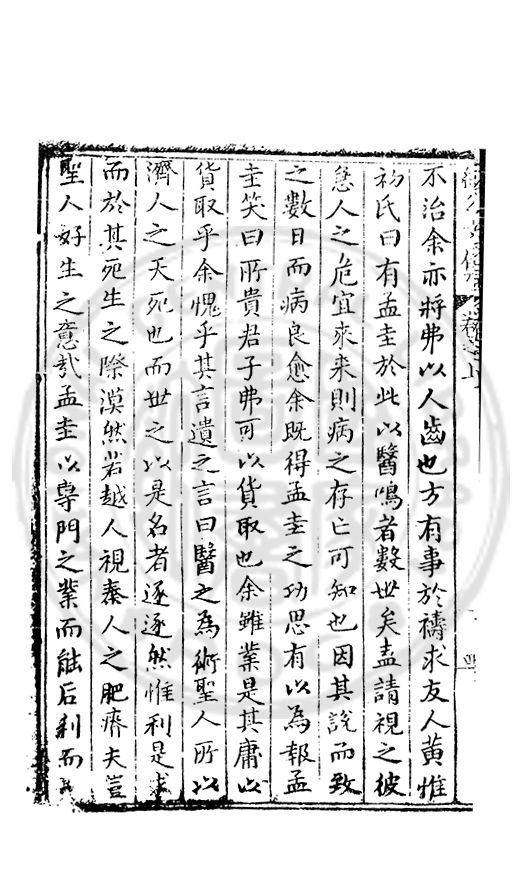 不治余亦將弗以人齒也方有事於禱求友人黃惟
初氏曰有孟圭於此以醫鳴者數世矣盍請視之彼
急人之危宜來来則病之存亡可知也因其說而致
之數日而病良愈余既得孟圭之功思有以為報孟
圭笑曰所貴君子弗可以貨取也余雖業是其庸以
貨取乎余愧乎其言遺之言曰醫之為術聖人所以
濟人之夭死也而世之以是名者逐逐然惟利是求
而於其死生之際漠然若越人視秦人之肥瘠夫豈
聖人好生之意哉孟圭以專門之業而能后利而